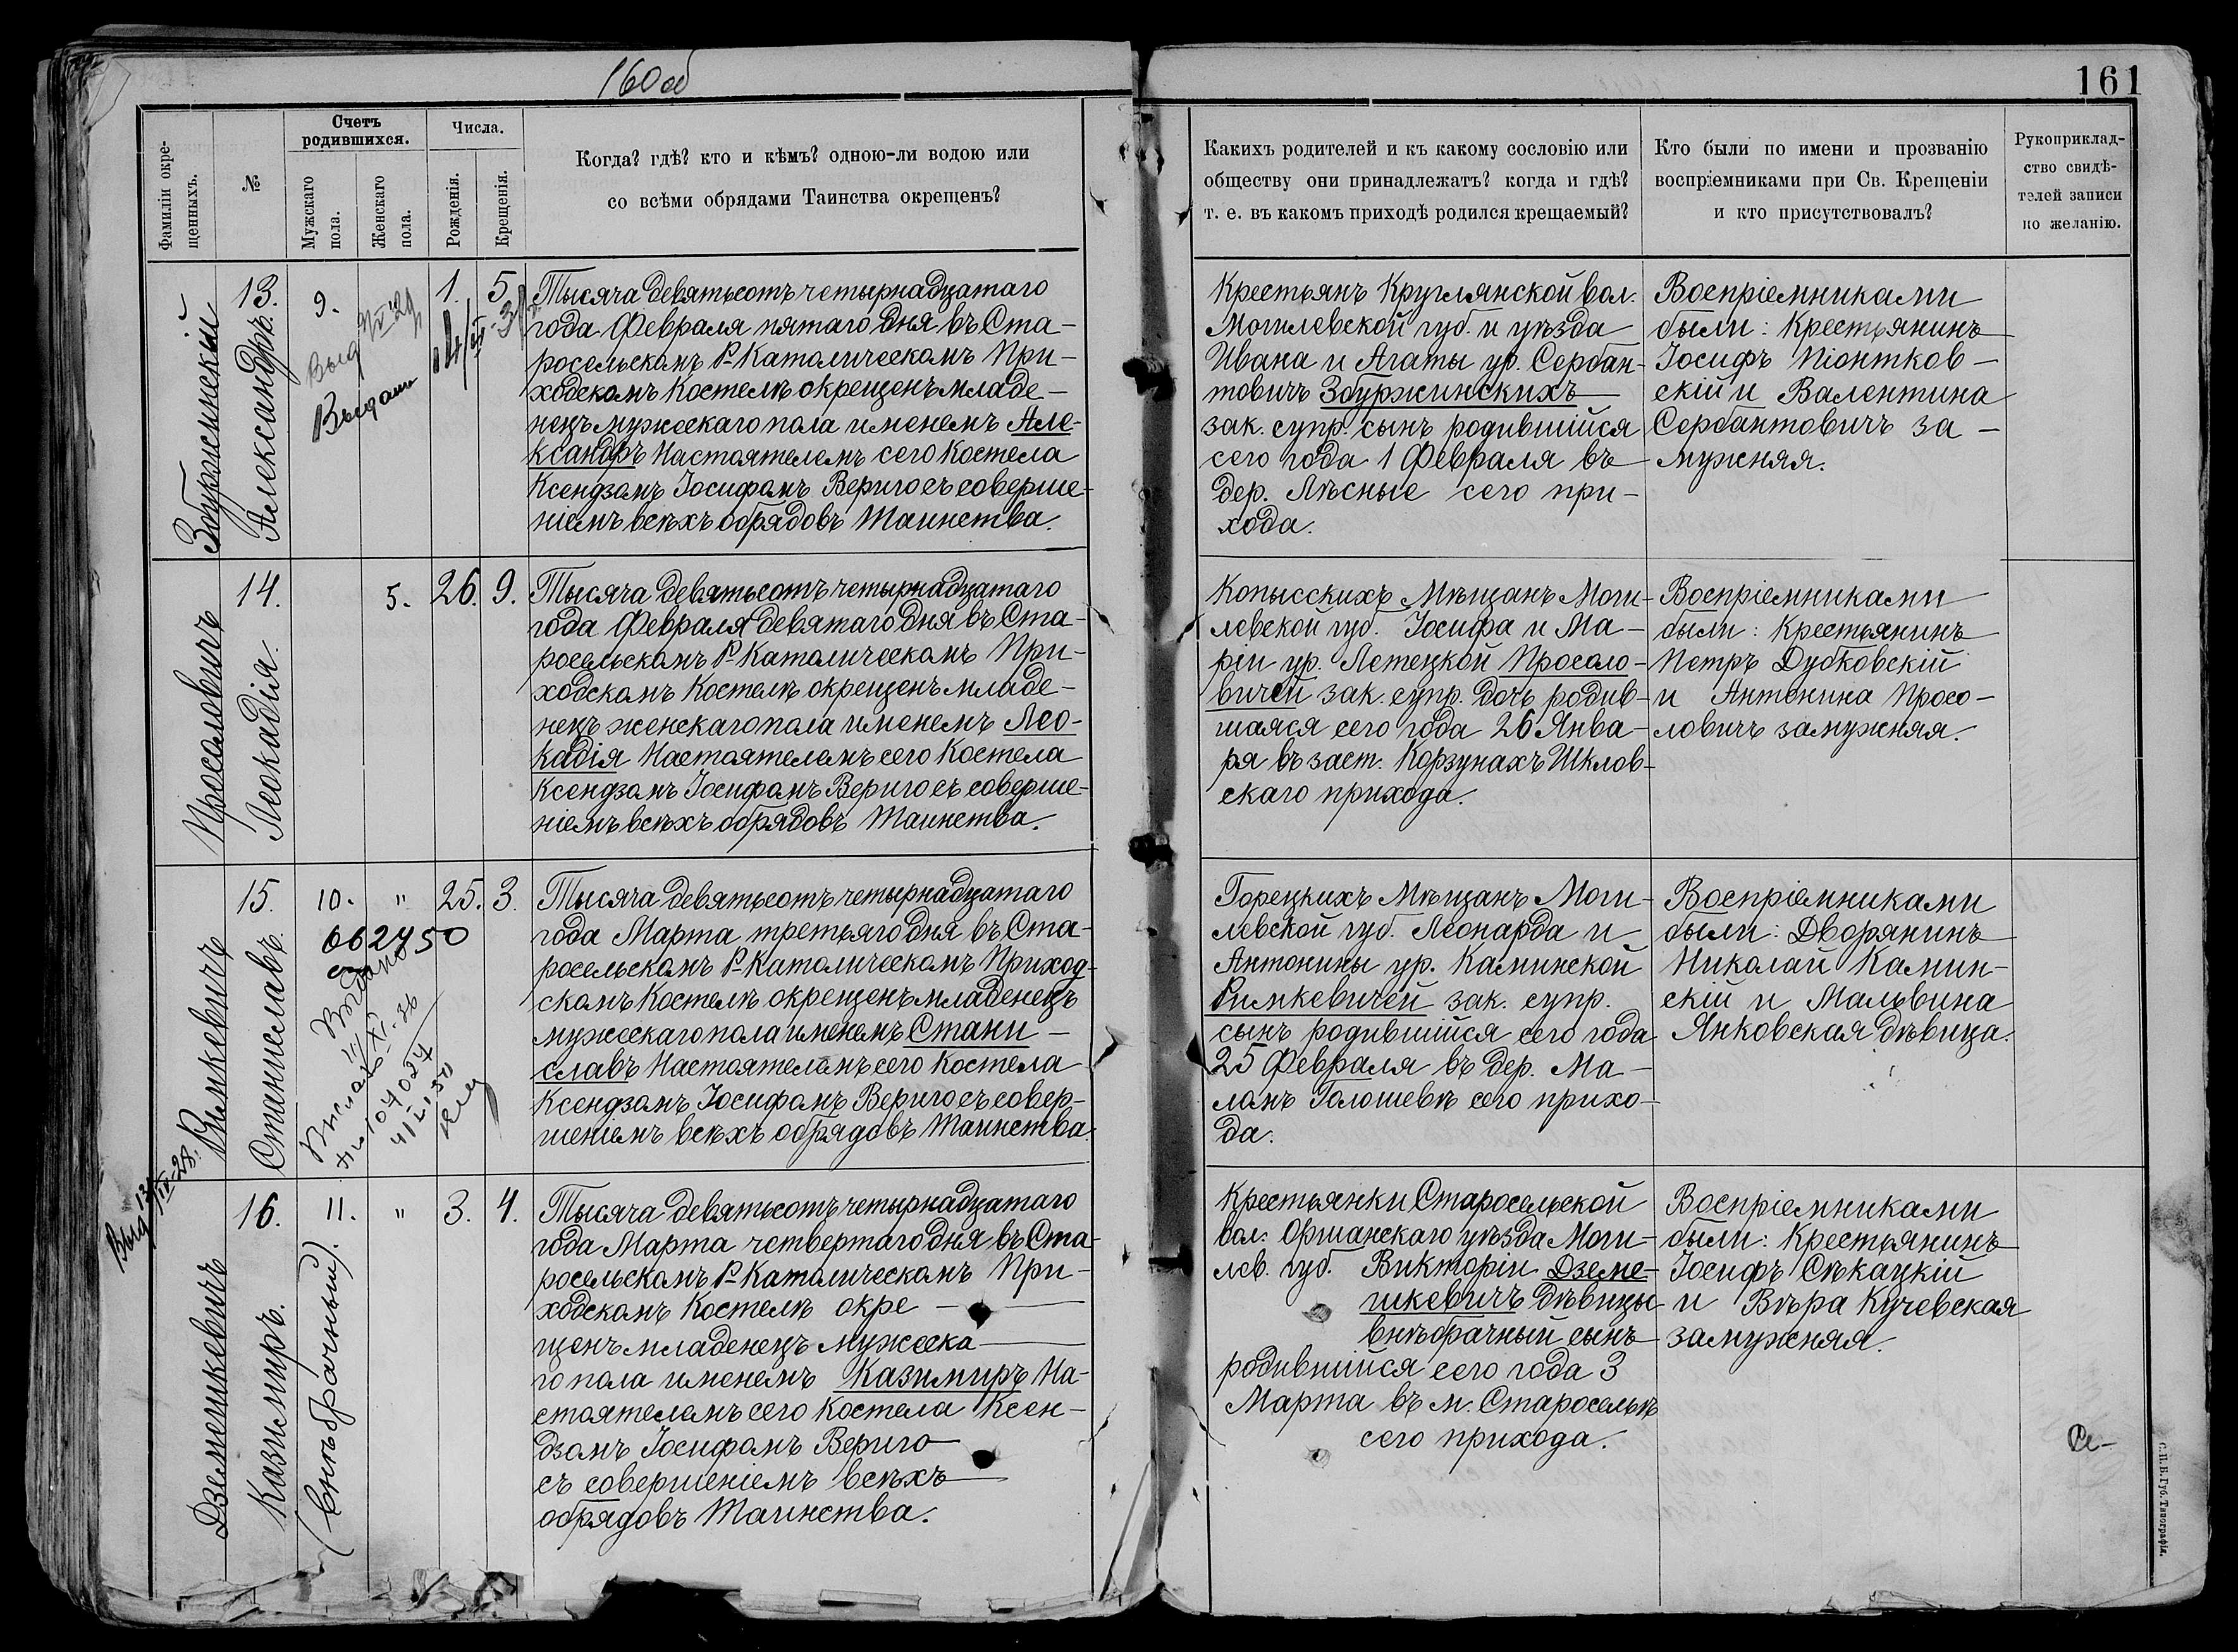 160 об
161
Фамиліи окрещенныхъ.
№
Счетъ родившихся.
Мужскаго пола.
Женскаго пола.
Числа.
Рожденія.
Крещенія.
Когда? гдѣ? кто и кѣмъ? одною-ли водою или
со всѣми обрядами Таинства окрещенъ?
Какихъ родителей и къ какому сословію или
обществу они принадлежатъ? когда и гдѣ?
т. е. въ какомъ приходѣ родился крещаемый?
Кто были по имени и прозванію
воспріемниками при Св. Крещеніи
и кто присутствовалъ?
Рукоприклад-
ство свидѣ-
телей записи
по желанію.
Збуржинскій
Александръ.
13.
9.
Выдано
1.
5.
Тысяча девятьсотъ четырнадцатаго
года Февраля пятаго дня въ Ста-
росельскомъ Р-Католическомъ При-
ходскомъ Костелѣ окрещенъ младе-
нецъ мужескаго пола именемъ Але-
ксандръ Настоятелемъ сего Костела
Ксендзомъ Іосифомъ Вериго съ соверше-
ніемъ всѣхъ обрядовъ Таинства.
Крестьянъ Круглянской вол.
Могилевской губ. и уѣзда
Ивана и Агаты ур. Сербан-
товичъ Збуржинскихъ
зак. супр. сынъ родившійся
сего года 1 Февраля въ
дер. Лѣсные сего при-
хода.
Воспріемниками
были: Крестьянинъ
Іосифъ Піонтков-
скій и Валентина
Сербантовичъ за-
мужняя.
Просоловичъ
Леокадія.
14.
5.
26.
9.
Тысяча девятьсотъ четырнадцатаго
года Февраля девятаго дня въ Ста-
росельскомъ Р-Католическомъ При-
ходскомъ Костелѣ окрещенъ младе-
нецъ женскаго пола именемъ Лео-
кадія Настоятелемъ сего Костела
Ксендзомъ Іосифомъ Вериго съ соверше-
ніемъ всѣхъ обрядовъ Таинства.
Копысскихъ Мѣщанъ Моги-
левской губ. Іосифа и Ма-
ріи ур. Летецкой Просоло-
вичей зак. супр. дочь родив-
шаяся сего года 26 Янва-
ря въ заст. Корзунахъ Шклов-
скаго прихода.
Воспріемниками
были: Крестьянинъ
Петръ Дубковскій
и Антонина Просо-
ловичъ замужняя.
Римкевичъ
Станиславъ.
15.
10.
"
25.
3.
662450
Тысяча девятьсотъ четырнадцатаго
года Марта третьяго дня въ Ста-
росельскомъ Р-Католическомъ Приход-
скомъ Костелѣ окрещенъ младенецъ
мужескаго пола именемъ Стани-
славъ Настоятелемъ сего Костела
Ксендзомъ Іосифомъ Вериго съ совер-
шеніемъ всѣхъ обрядовъ Таинства.
Горецкихъ Мѣщанъ Моги-
левской губ. Леонарда и
Антонины ур. Каминской
Римкевичей зак. супр.
сынъ родившійся сего года
25 Февраля въ дер. Ма-
ломъ Голошевѣ сего прихо-
да.
Воспріемниками
были: Дворянинъ
Николай Камин-
скій и Мальвина
Янковская дѣвица.
Дземешкевичъ
Казимиръ.
(внѣбрачный).
16.
11.
"
3.
4.
Тысяча девятьсотъ четырнадцатаго
года Марта четвертаго дня въ Ста-
росельскомъ Р-Католическомъ При-
ходскомъ Костелѣ окре-
щенъ младенецъ мужеска-
го пола именемъ Казимиръ На-
стоятелемъ сего Костела Ксен-
дзомъ Іосифомъ Вериго
съ совершеніемъ всѣхъ
обрядовъ Таинства.
Крестьянки Старосельской
вол. Оршанскаго уѣзда Моги-
лев. губ. Викторіи Дземе-
шкевичъ дѣвицы
внѣбрачный сынъ
родившійся сего года 3
Марта въ м. Старосельѣ
сего прихода.
Воспріемниками
были: Крестьянинъ
Іосифъ Сѣкацкій
и Вѣра Кучевская
замужняя.
С.П.Б. Губ. Типографія.